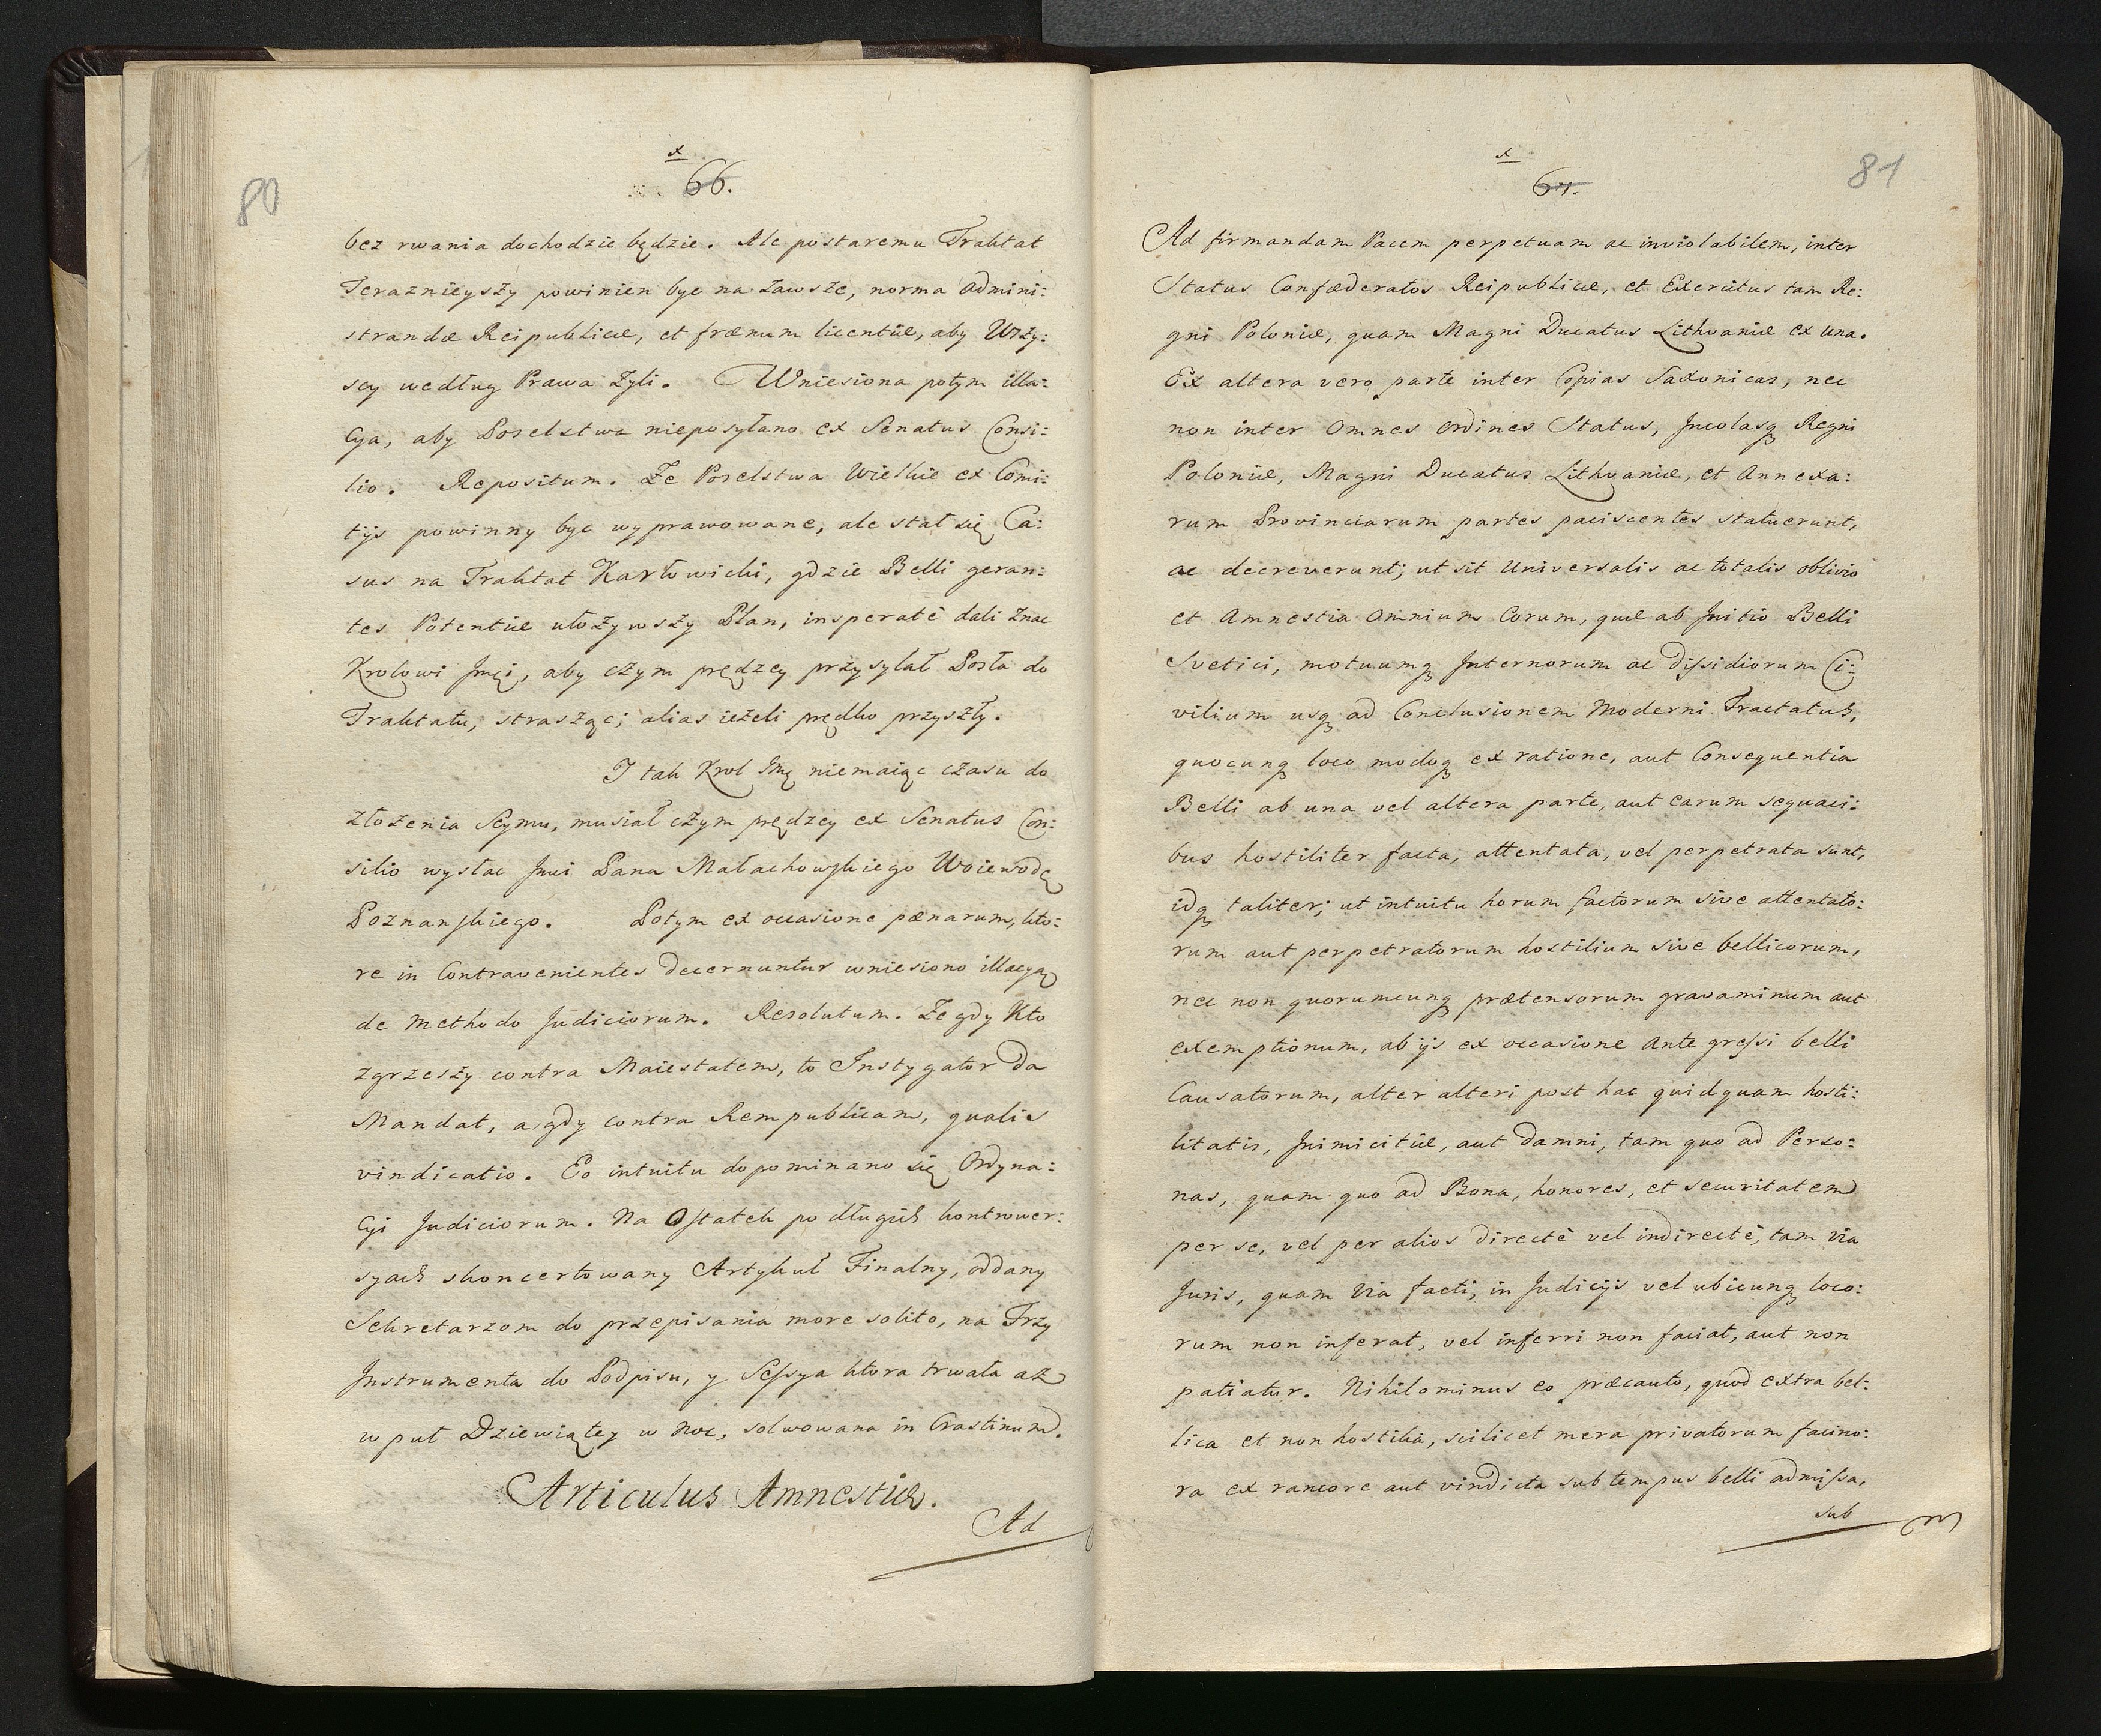 80
x
66.
bez rwania dochodzic będzie. Ale postaremu Traktat
Teraznieyszy powinien byc na zawsze, norma admini:
strandæ Reipublicæ, et frænum licentiæ, aby Wszy:
scy według Prawa żyli. Wniesiona potym illa:
cya, aby Poselstwa nieposyłano ex Senatus Consi:
lio. Repositum. Ze Poselstwa Wielkie ex Comi:
tijs powinny byc wyprawowane, ale stał się Ca:
sus na Traktat Karłowicki, gdzie Belli geran:
tes Potentiæ ułożywszy Plan, insperatè dali znac
Krolowi Jmci, aby czym prędzey przysyłał Posła do
Traktatu, strasząc; alias ieżeli prędko przyszły.
I tak Krol Jmć niemaiąc czasu do
złożenia Seymu, musiał czym prędzey ex Senatus Con:
silio wysłac Jmci Pana Małachowskiego Woiewodę
Poznanskiego. Potym ex occasione pœnarum, kto:
re in Contravenientes decernuntur wniesiono illacyą
de methodo Judiciorum. Resolutum. Ze gdy Kto
zgrzeszy contra Maiestatem, to Instygator da
Mandat, a gdy contra Rempublicam, qualis
vindicatio. Eo intuitu dopominano się Ordyna:
cyi Judiciorum. Na Ostatek po długich kontrower:
syach skoncertowany Artykuł Finalny, oddany
Sekretarzom do przepisania more solito, na Trzy
Instrumenta do Podpisu, y Sessya ktora trwała aż
w puł Dziewiątey w Noc, solwowana in Crastinum.
Articulus Amnestiæ.
Ad
81
x
67.
Ad firmandam Pacem perpetuam ac inviolabilem, inter
Status Confæderatos Reipublicæ, et Exercitus tam Re:
gni Poloniæ, quam Magni Ducatus Lithvaniæ ex una.
Ex altera vero parte inter Copias Saxonicas, nec
non inter Omnes Ordines Status, Jncolasq Regni
Poloniæ, Magni Ducatus Lithvaniæ, et Annexa:
rum Provinciarum partes paciscentes statuerunt,
ac decreverunt; ut sit Universalis ac totalis oblivio
et Amnestia Omnium Eorum, quæ ab Jnitio Belli
Svetici, motuumq Jnternorum ac dissidiorum Ci:
vilium usq ad Conclusionem Moderni Tractatus,
quocunq loco modoq ex ratione, aut Consequentia
Belli ab una vel altera parte, aut earum sequaci:
bus hostiliter facta, attentata, vel perpetrata sunt,
idq taliter; ut intuitu horum factorum sive attentato:
rum aut perpetratorum hostilium sive bellicorum,
nec non quorumcunq prætensorum gravaminum aut
exemptionum, ab ijs ex occasione Ante gressi belli
Causatorum, alter alteri post hac quidquam hosti:
litatis, Jnimicitiæ, aut damni, tam quo ad Perso:
nas, quam quo ad Bona, honores, et securitatem
per se, vel per alios directè vel indirectè, tam via
Juris, quam via facti, in Judicijs vel ubicunq loco:
rum non inferat, vel inferri non faciat, aut non
patiatur. Nihilominus eo præcauto, quod extra bel:
lica et non hostilia, scilicet mera privatorum facino:
ra ex rancore aut vindicta sub tempus belli admissa,
sub